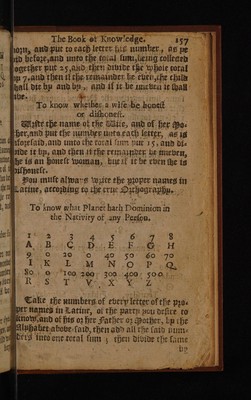 The Book of Knowledge. 157
born, and put to each letter his number, as he
did before, and unto the total sum, being collected
together put 25, and then divide the whole total
by 7, and then if the remainder be even, the child
shall die by and by, and if it be uneven it shall
live.
To know whether a wife be honest
or dishonest.
Write the name of the Wife, and of her Mo-
ther, and put the number unto each letter, as is
aforesaid, and unto the total sum put 15, and di-
vide it by, and then if the remainder be uneven,
she is an honest woman, but if it be even she is
dishonest.
You must always write the proper names in
Latine, according to the true Orthography.
To know what Planet hath Dominion in
the Nativity of any Person.
1 2 3 4 5 6 7 8
A B C D E F G H
9 0 20 0 40 50 60 70
I K L M N O P Q
80 0 100 200 300 400 500
R S T V X Y Z
Take the numbers of every letter of the pro-
per names in Latine, of the party you desire to
know, and of his or her Father or Mother, by the
Alphabet above-said, then add all the said num-
bers into one total sum; then divide the same
by